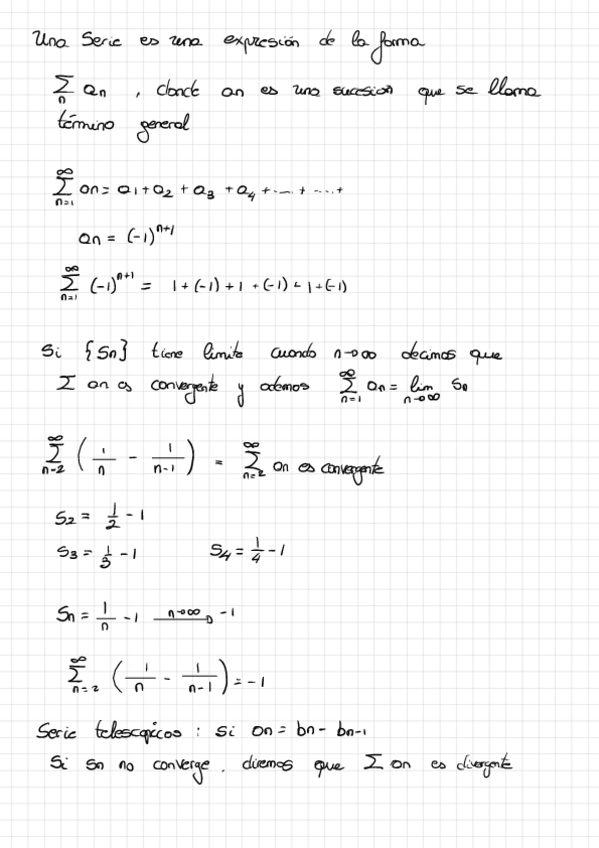 Una Serie es una expresión de la forma
∑_n an , donde an es una sucesion que se llama
término general
∑_{n=1}^∞ an = a1 + a2 + a3 + a4 + .... + .... +
an = (-1)^{n+1}
∑_{n=1}^∞ (-1)^{n+1} = 1 + (-1) + 1 + (-1) + 1 + (-1)
Si {Sn} tiene limite cuando n→∞ decimos que
∑ an es convergente y ademos ∑_{n=1}^∞ an = lim_{n→∞} Sn
∑_{n=2}^∞ (1/n - 1/(n-1)) = ∑_{n=2}^∞ an es convergente
S2 = 1/2 - 1
S3 = 1/3 - 1 S4 = 1/4 - 1
Sn = 1/n - 1 n→∞→ -1
∑_{n=2}^∞ (1/n - 1/(n-1)) = -1
Serie telescopicos : si an = bn - bn-1
Si sn no converge , diremos que ∑ an es divergente